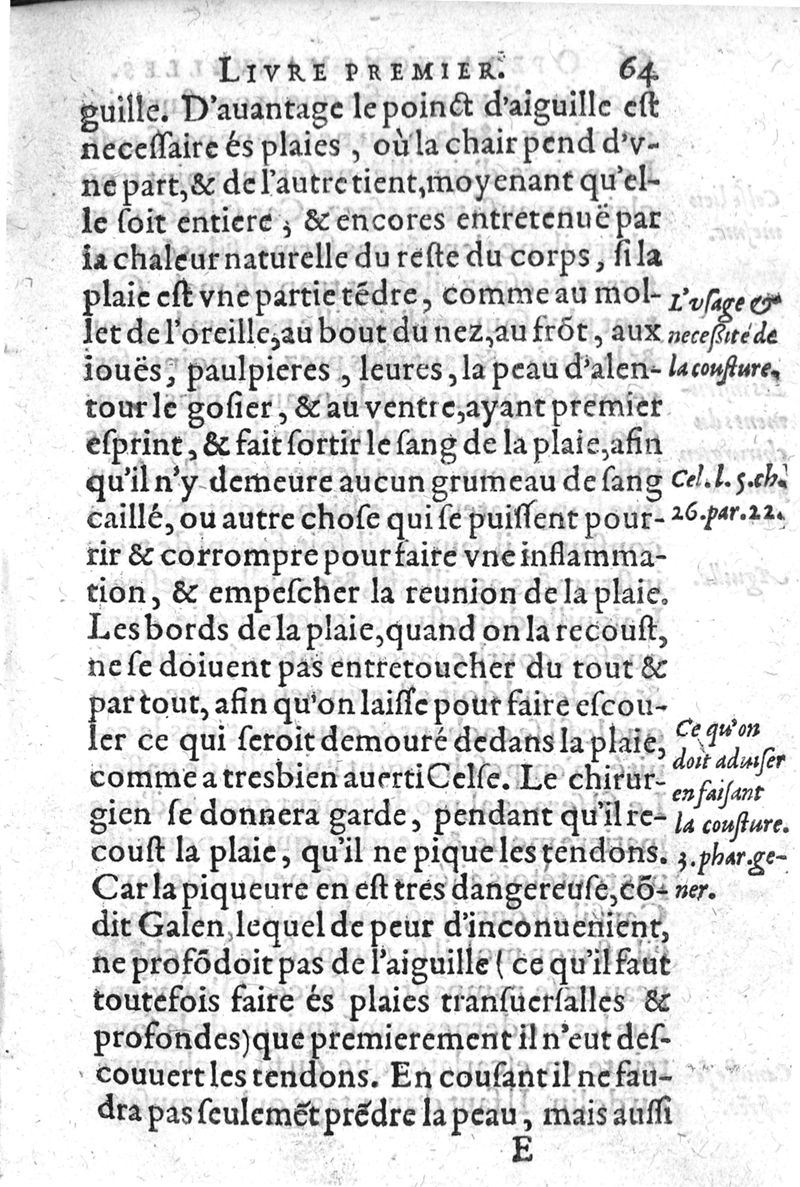 LIVRE PREMIER. 64
guille. D'auantage le poinct d'aiguille eſt
neceſſaire és plaies , où la chair pend d'v-
ne part, & de l'autre tient, moyenant qu'el-
le ſoit entiere ; & encores entretenuë par
la chaleur naturelle du reſte du corps , ſi la
plaie eſt vne partie tẽdre , comme au mol-
let de l'oreille, au bout du nez, au frõt , aux
iouës , paulpieres , leures , la peau d'alen-
tour le goſier , & au ventre, ayant premier
eſprint , & fait ſortir le ſang de la plaie, afin
qu'il n'y demeure aucun grumeau de ſang
caillé, ou autre choſe qui ſe puiſſent pour-
rir & corrompre pour faire vne inflamma-
tion , & empeſcher la reunion de la plaie.
Les bords de la plaie, quand on la recouſt,
ne ſe doiuent pas entretoucher du tout &
par tout, afin qu'on laiſſe pour faire eſcou-
ler ce qui ſeroit demouré dedans la plaie,
comme a tresbien auerti Celſe. Le chirur-
gien ſe donnera garde, pendant qu'il re-
couſt la plaie , qu'il ne pique les tendons.
Car la piqueure en eſt tres dangereuſe, cõ-
dit Galen, lequel de peur d'inconuenient,
ne profõdoit pas de l'aiguille ( ce qu'il faut
toutefois faire és plaies tranſuerſalles &
profondes) que premierement il n'eut deſ-
couuert les tendons. En couſant il ne fau-
dra pas ſeulemẽt prẽdre la peau , mais auſſi
E
L'vſage &
neceſſité de
la couſture.
Cel. l. 5. ch.
26. par. 22.
Ce qu'on
doit aduiſer
en faiſant
la couſture.
3. phar. ge-
ner.